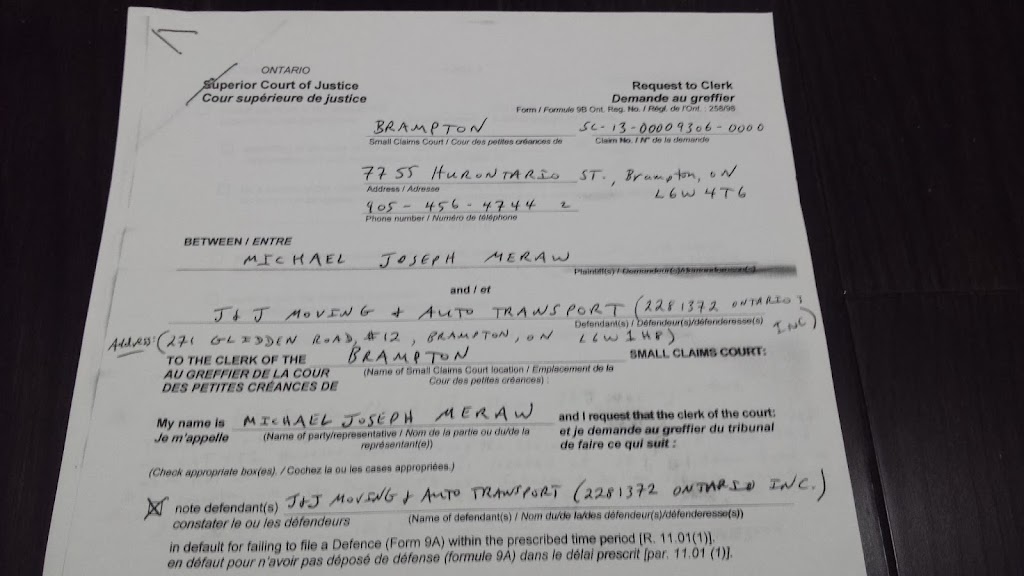 ONTARIO
Superior Court of Justice
Cour supérieure de justice
Request to Clerk
Demande au greffier
Form / Formule 9B Ont. Reg. No. / Règl. de l'Ont. : 258/98
BRAMPTON
SC-13-00009306-0000
Small Claims Court / Cour des petites créances de
Claim No. / N° de la demande
7755 HURONTARIO ST., Brampton, ON
L6W 4T6
Address / Adresse
905-456-4744 2
Phone number / Numéro de téléphone
BETWEEN / ENTRE
MICHAEL JOSEPH MERAW
Plaintiff(s) /
and / et
J&J MOVING & AUTO TRANSPORT (2281372 ONTARIO
INC)
Defendant(s) / Défendeur(s)/défenderesse(s)
Address: (271 GLIDDEN ROAD, #12, BRAMPTON, ON L6W 1H8)
TO THE CLERK OF THE BRAMPTON SMALL CLAIMS COURT:
AU GREFFIER DE LA COUR (Name of Small Claims Court location / Emplacement de la
DES PETITES CRÉANCES DE Cour des petites créances) :
My name is MICHAEL JOSEPH MERAW and I request that the clerk of the court:
Je m'appelle (Name of party/representative / Nom de la partie ou du/de la
représentant(e))
et je demande au greffier du tribunal
de faire ce qui suit :
(Check appropriate box(es). / Cochez la ou les cases appropriées.)
note defendant(s) J&J MOVING & AUTO TRANSPORT (2281372 ONTARIO INC.)
constater le ou les défendeurs (Name of defendant(s) / Nom du/de la/des défendeur(s)/défenderesse(s))
in default for failing to file a Defence (Form 9A) within the prescribed time period [R. 11.01(1)].
en défaut pour n'avoir pas déposé de défense (formule 9A) dans le délai prescrit [par. 11.01 (1)].